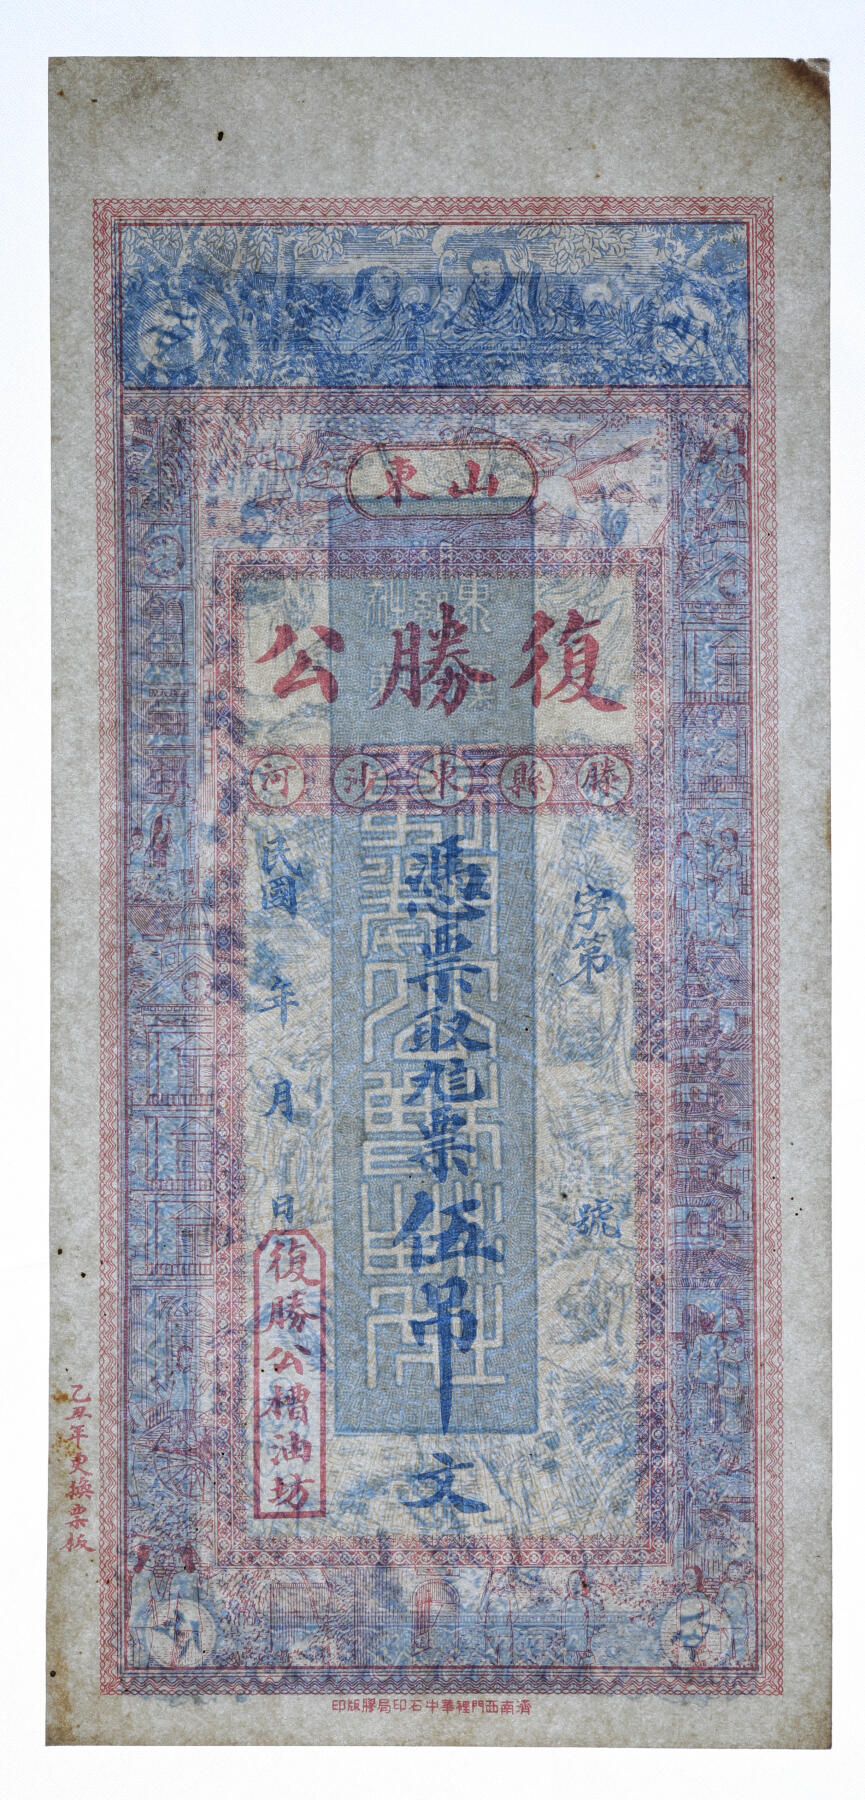 山東
復勝公
滕縣東沙河
字第
號
憑票取旭票伍吊文
民國
年
月
日
復勝公槽油坊
乙丑年更換票板
濟南西門裡華中石印局膠版印